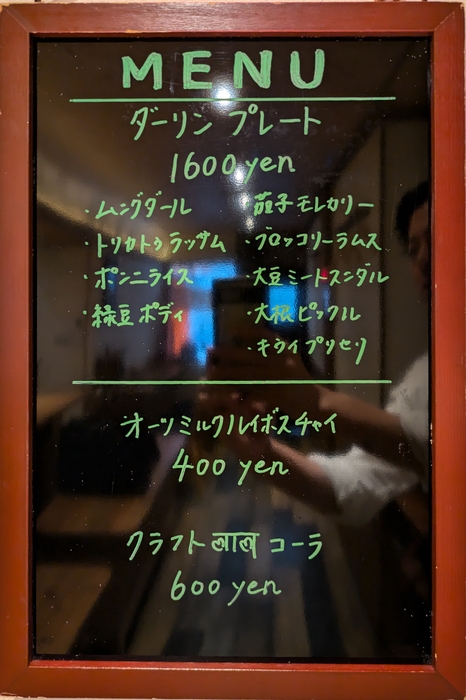 MENU
ダーリン プレート
1600 yen
・ムングダール
・トリカトゥラッサム
・ポンニライス
・緑豆ポディ
茄子モレカリー
・ブロッコリーラムス
・大豆ミートスンダル
・大根ピックル
・キウイプリセリ
オーツミルクルイボスチャイ
400 yen
クラフト लाल コーラ
600 yen